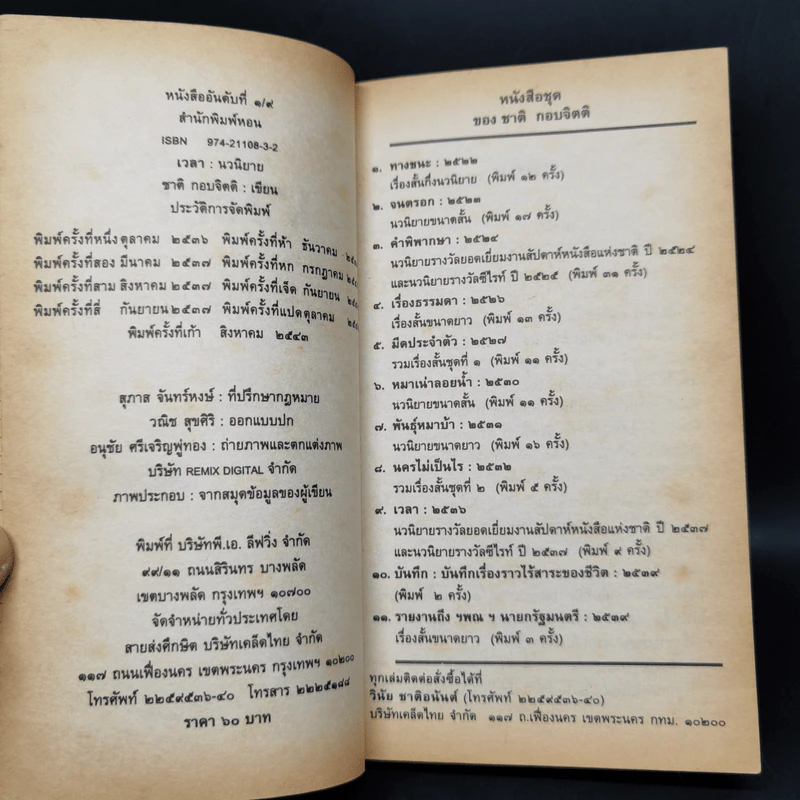 หนังสืออันดับที่ ๑/๙
สำนักพิมพ์หอน
ISBN 974-21108-3-2
เวลา : นวนิยาย
ชาติ กอบจิตติ : เขียน
ประวัติการจัดพิมพ์
พิมพ์ครั้งที่หนึ่ง ตุลาคม ๒๕๓๖ พิมพ์ครั้งที่ห้า ธันวาคม
พิมพ์ครั้งที่สอง มีนาคม ๒๕๓๗ พิมพ์ครั้งที่หก กรกฎาคม
พิมพ์ครั้งที่สาม สิงหาคม ๒๕๓๗ พิมพ์ครั้งที่เจ็ด กันยายน
พิมพ์ครั้งที่สี่ กันยายน ๒๕๓๗ พิมพ์ครั้งที่แปด ตุลาคม
พิมพ์ครั้งที่เก้า สิงหาคม ๒๕๔๓
สุภาส จันทร์หงษ์ : ที่ปรึกษากฎหมาย
วณิช สุขศิริ : ออกแบบปก
อนุชัย ศรีเจริญพู่ทอง : ถ่ายภาพและตกแต่งภาพ
บริษัท REMIX DIGITAL จำกัด
ภาพประกอบ : จากสมุดข้อมูลของผู้เขียน
พิมพ์ที่ บริษัทพี.เอ. ลีฟวิ่ง จำกัด
๙๙/๑๑ ถนนสิรินทร บางพลัด
เขตบางพลัด กรุงเทพฯ ๑๐๗๐๐
จัดจำหน่ายทั่วประเทศโดย
สายส่งศึกษิต บริษัทเคล็ดไทย จำกัด
๑๑๗ ถนนเฟื่องนคร เขตพระนคร กรุงเทพฯ ๑๐๒๐๐
โทรศัพท์ ๒๒๕๙๕๓๖-๔๐ โทรสาร ๒๒๒๕๑๘๘
ราคา ๖๐ บาท
หนังสือชุด
ของ ชาติ กอบจิตติ
๑. ทางชนะ : ๒๕๒๒
เรื่องสั้นกึ่งนวนิยาย (พิมพ์ ๑๒ ครั้ง)
๒. จนตรอก : ๒๕๒๓
นวนิยายขนาดสั้น (พิมพ์ ๑๗ ครั้ง)
๓. คำพิพากษา : ๒๕๒๔
นวนิยายรางวัลยอดเยี่ยมงานสัปดาห์หนังสือแห่งชาติ ปี ๒๕๒๔
และนวนิยายรางวัลซีไรท์ ปี ๒๕๒๕ (พิมพ์ ๓๑ ครั้ง)
๔. เรื่องธรรมดา : ๒๕๒๖
เรื่องสั้นขนาดยาว (พิมพ์ ๑๓ ครั้ง)
๕. มีดประจำตัว : ๒๕๒๗
รวมเรื่องสั้นชุดที่ ๑ (พิมพ์ ๑๑ ครั้ง)
๖. หมาเน่าลอยน้ำ : ๒๕๓๐
นวนิยายขนาดสั้น (พิมพ์ ๑๑ ครั้ง)
๗. พันธุ์หมาบ้า : ๒๕๓๑
นวนิยายขนาดยาว (พิมพ์ ๑๖ ครั้ง)
๘. นครไม่เป็นไร : ๒๕๓๒
รวมเรื่องสั้นชุดที่ ๒ (พิมพ์ ๕ ครั้ง)
๙. เวลา : ๒๕๓๖
นวนิยายรางวัลยอดเยี่ยมงานสัปดาห์หนังสือแห่งชาติ ปี ๒๕๓๗
และนวนิยายรางวัลซีไรท์ ปี ๒๕๓๗ (พิมพ์ ๙ ครั้ง)
๑๐. บันทึก : บันทึกเรื่องราวไร้สาระของชีวิต : ๒๕๓๙
(พิมพ์ ๒ ครั้ง)
๑๑. รายงานถึง ฯพณ ฯ นายกรัฐมนตรี : ๒๕๓๙
เรื่องสั้นขนาดยาว (พิมพ์ ๓ ครั้ง)
ทุกเล่มติดต่อสั่งซื้อได้ที่
วินัย ชาติอนันต์ (โทรศัพท์ ๒๒๕๙๕๓๖-๔๐)
บริษัทเคล็ดไทย จำกัด ๑๑๗ ถ.เฟื่องนคร เขตพระนคร กทม. ๑๐๒๐๐